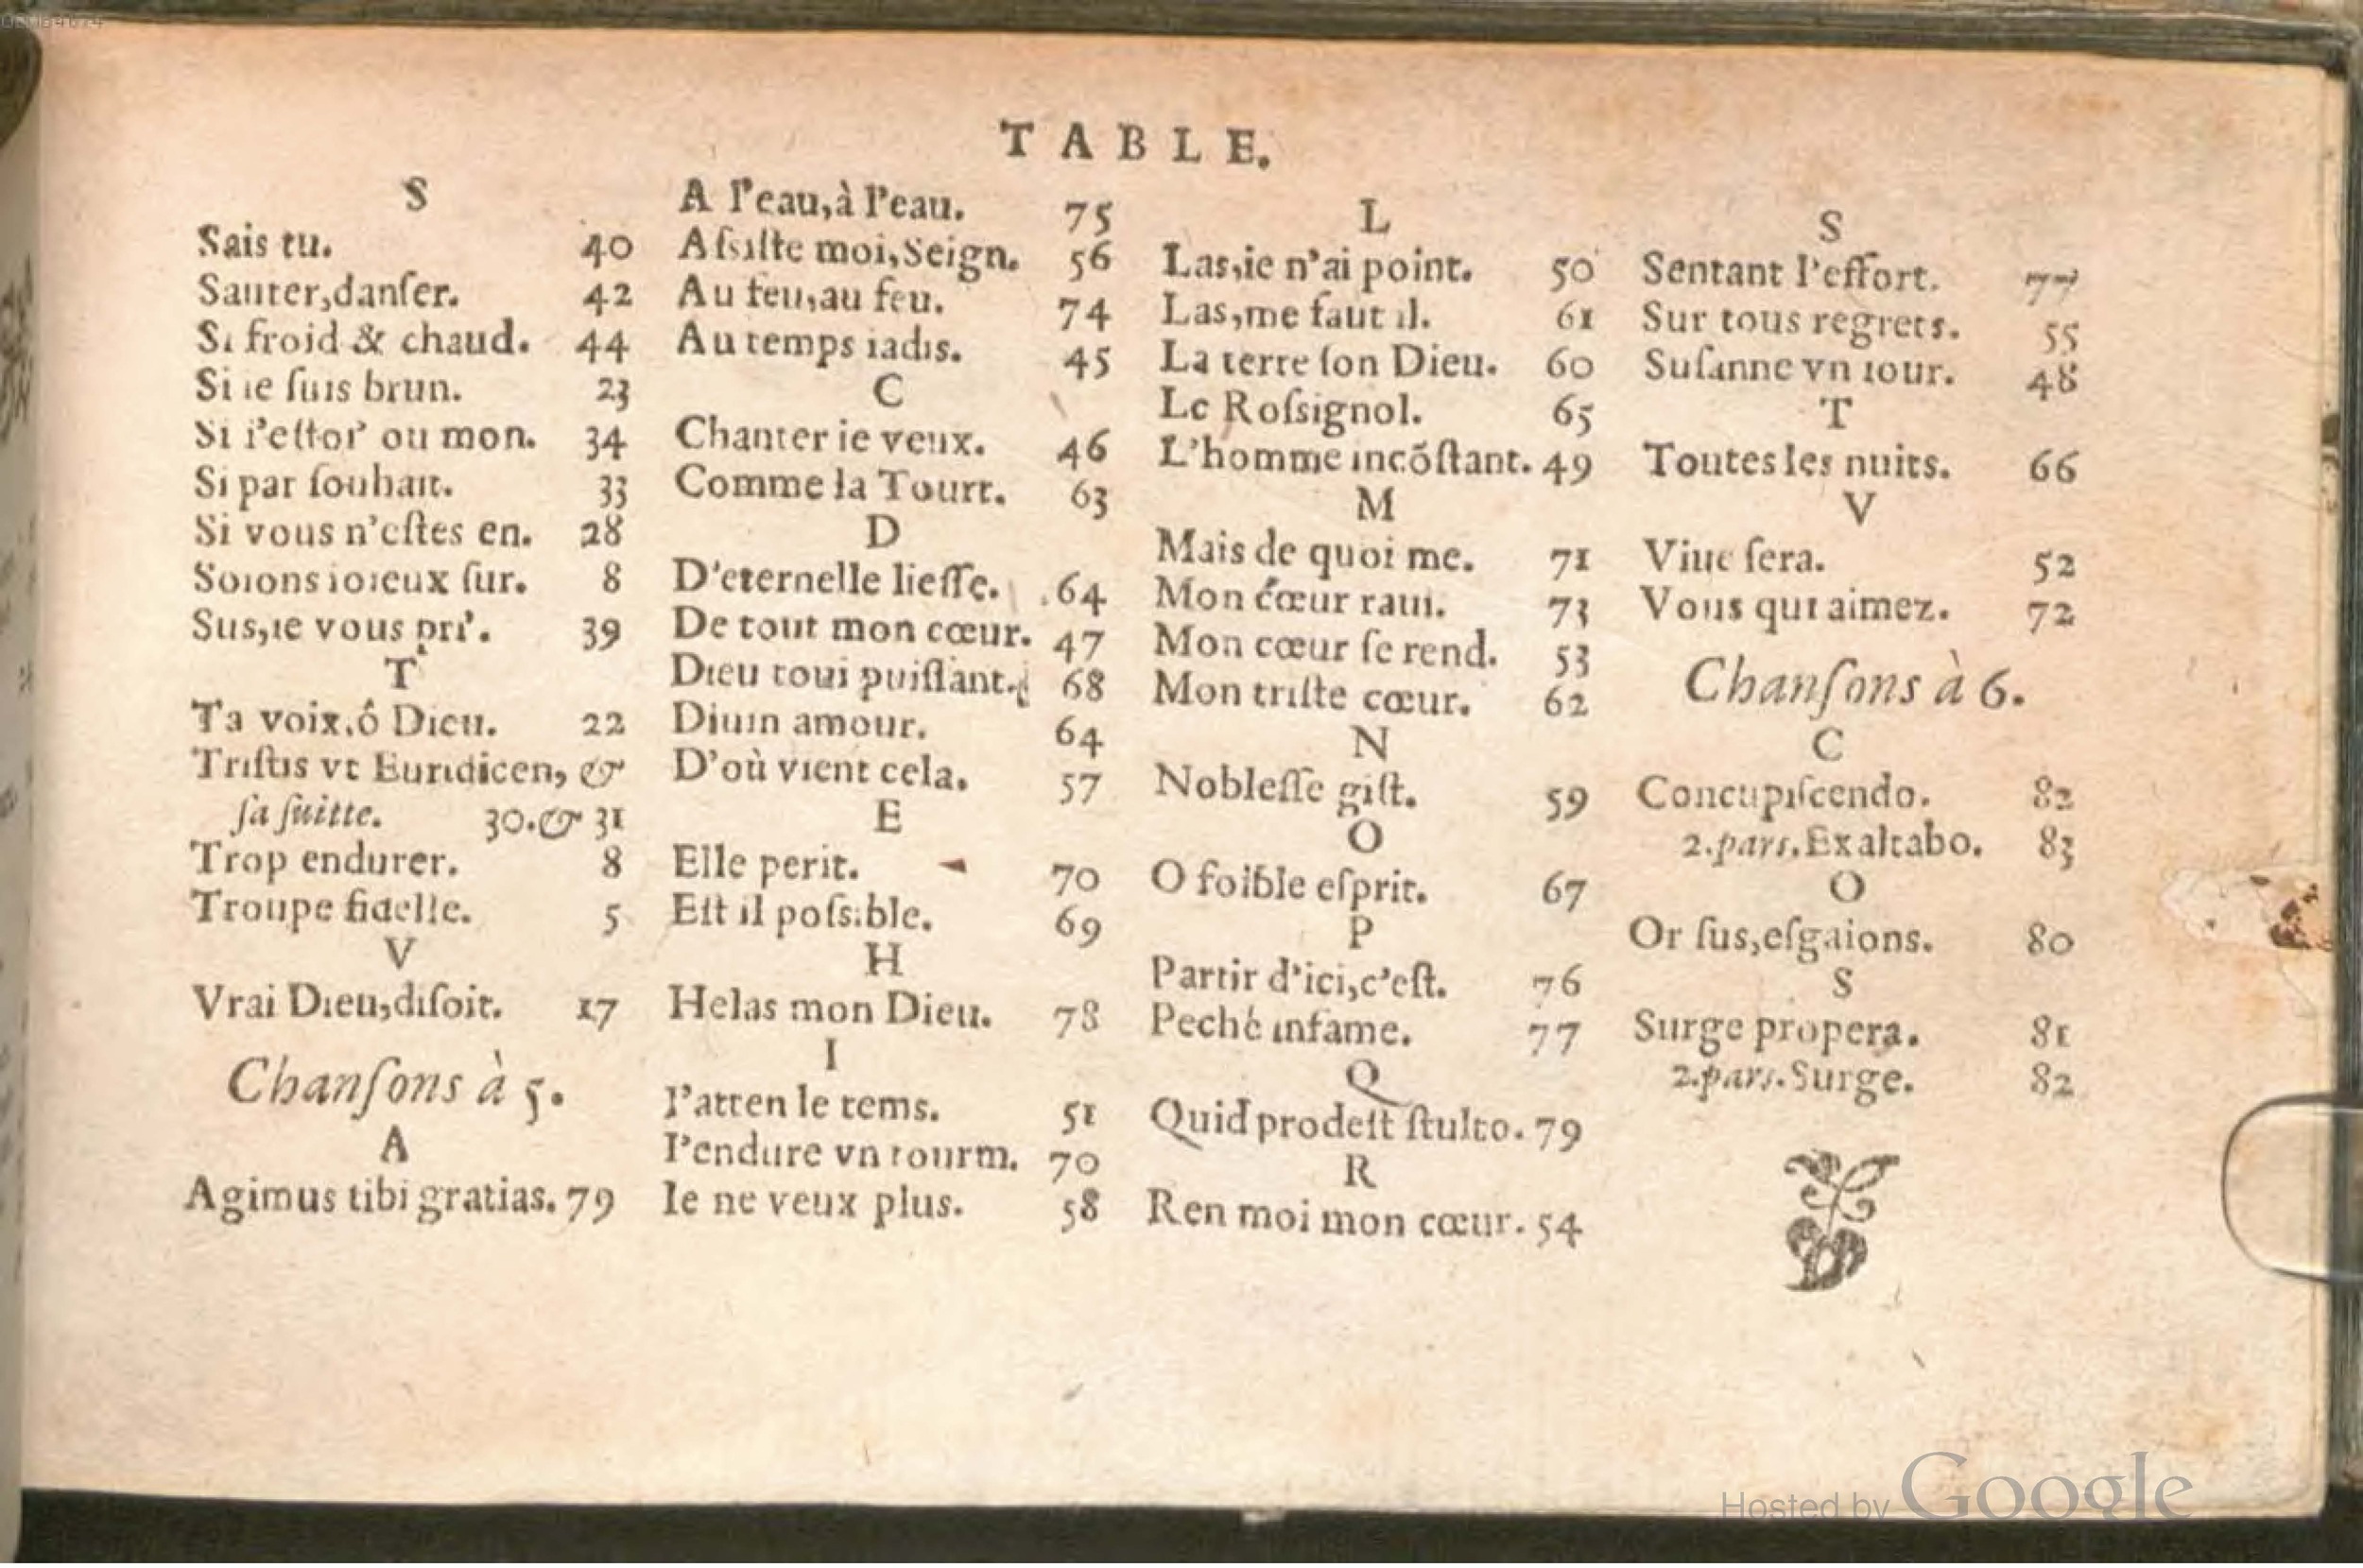 TABLE.
S
Sais tu. 40
Sauter,danſer. 42
Si froid & chaud. 44
Si ie ſuis brun. 23
Si l'eſtor' ou mon. 34
Si par ſouhait. 33
Si vous n'eſtes en. 28
Soions ioieux ſur. 8
Sus,ie vous pri'. 39
T
Ta voix,ô Dieu. 22
Triſtis vt Euridicen, &
ſa ſuitte. 30.& 31
Trop endurer. 8
Troupe fidelle. 5
V
Vrai Dieu,diſoit. 17
Chanſons à 5.
A
Agimus tibi gratias. 79
A l'eau,à l'eau. 75
Aſsiſte moi,Seign. 56
Au feu,au feu. 74
Au temps iadis. 45
C
Chanter ie veux. 46
Comme la Tourt. 63
D
D'eternelle lieſſe. 64
De tout mon cœur. 47
Dieu tout puiſſant. 68
Diuin amour. 64
D'où vient cela. 57
E
Elle perit. 70
Eſt il poſsible. 69
H
Helas mon Dieu. 78
I
I'atten le tems. 51
I'endure vn tourm. 70
Ie ne veux plus. 58
L
Las,ie n'ai point. 50
Las,me faut il. 61
La terre ſon Dieu. 60
Le Roſsignol. 65
L'homme incõſtant. 49
M
Mais de quoi me. 71
Mon cœur raui. 73
Mon cœur ſe rend. 53
Mon triſte cœur. 62
N
Nobleſſe giſt. 59
O
O foible eſprit. 67
P
Partir d'ici,c'eſt. 76
Peché infame. 77
Q
Quid prodeſt ſtulto. 79
R
Ren moi mon cœur. 54
S
Sentant l'effort. 77
Sur tous regrets. 55
Suſanne vn iour. 48
T
Toutes les nuits. 66
V
Viue ſera. 52
Vous qui aimez. 72
Chanſons à 6.
C
Concupiſcendo. 82
2.pars.Exaltabo. 83
O
Or ſus,eſgaions. 80
S
Surge propera. 81
2.pars.Surge. 82
Hosted by Google